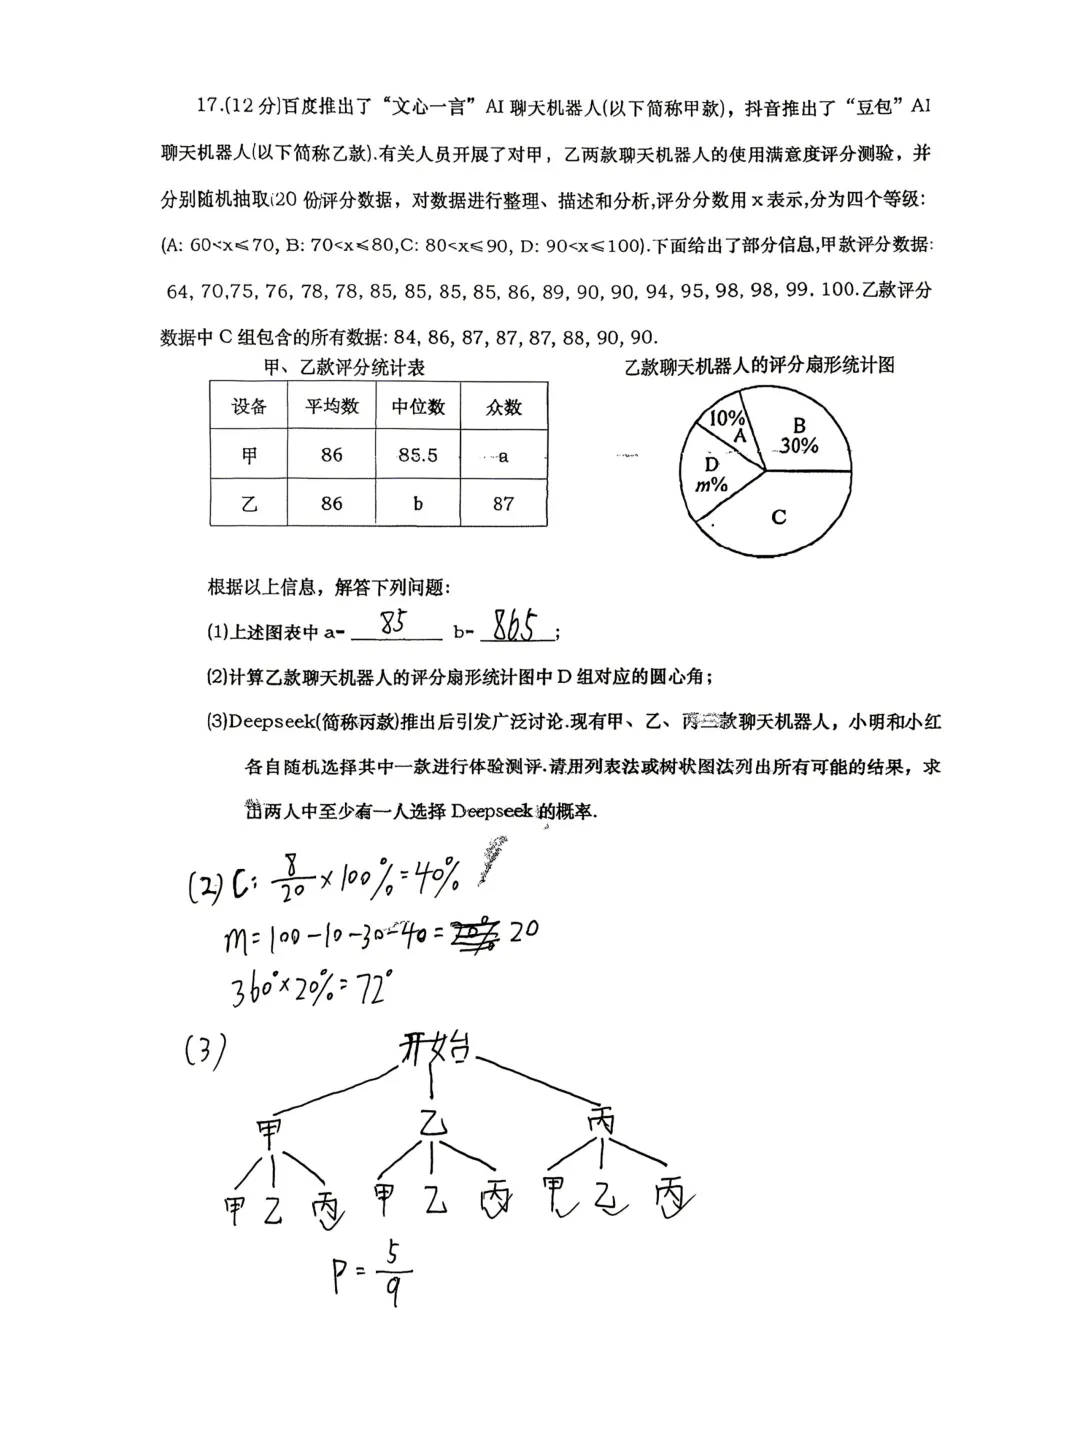 17.(12分)百度推出了“文心一言”AI聊天机器人(以下简称甲款)，抖音推出了“豆包”AI
聊天机器人(以下简称乙款).有关人员开展了对甲，乙两款聊天机器人的使用满意度评分测验，并
分别随机抽取20份评分数据，对数据进行整理、描述和分析,评分分数用x表示,分为四个等级:
(A: 60<x≤70, B: 70<x≤80,C: 80<x≤90, D: 90<x≤100).下面给出了部分信息,甲款评分数据:
64, 70,75, 76, 78, 78, 85, 85, 85, 85, 86, 89, 90, 90, 94, 95, 98, 98, 99. 100.乙款评分
数据中C组包含的所有数据: 84, 86, 87, 87, 87, 88, 90, 90.
甲、乙款评分统计表
设备 平均数 中位数 众数
甲 86 85.5 a
乙 86 b 87
乙款聊天机器人的评分扇形统计图
10%
A
B
30%
D
m%
C
根据以上信息，解答下列问题:
(1)上述图表中a= 85 b= 86.5 ;
(2)计算乙款聊天机器人的评分扇形统计图中D组对应的圆心角;
(3)Deepseek(简称丙款)推出后引发广泛讨论.现有甲、乙、丙三款聊天机器人，小明和小红
各自随机选择其中一款进行体验测评.请用列表法或树状图法列出所有可能的结果，求
出两人中至少有一人选择Deepseek的概率.
(2) C: 8/20 ×100%=40%
m=100-10-30-40= 20% 20
360°×20%=72°
(3)
开始
甲 乙 丙
甲 乙 丙 甲 乙 丙 甲 乙 丙
P= 5/9